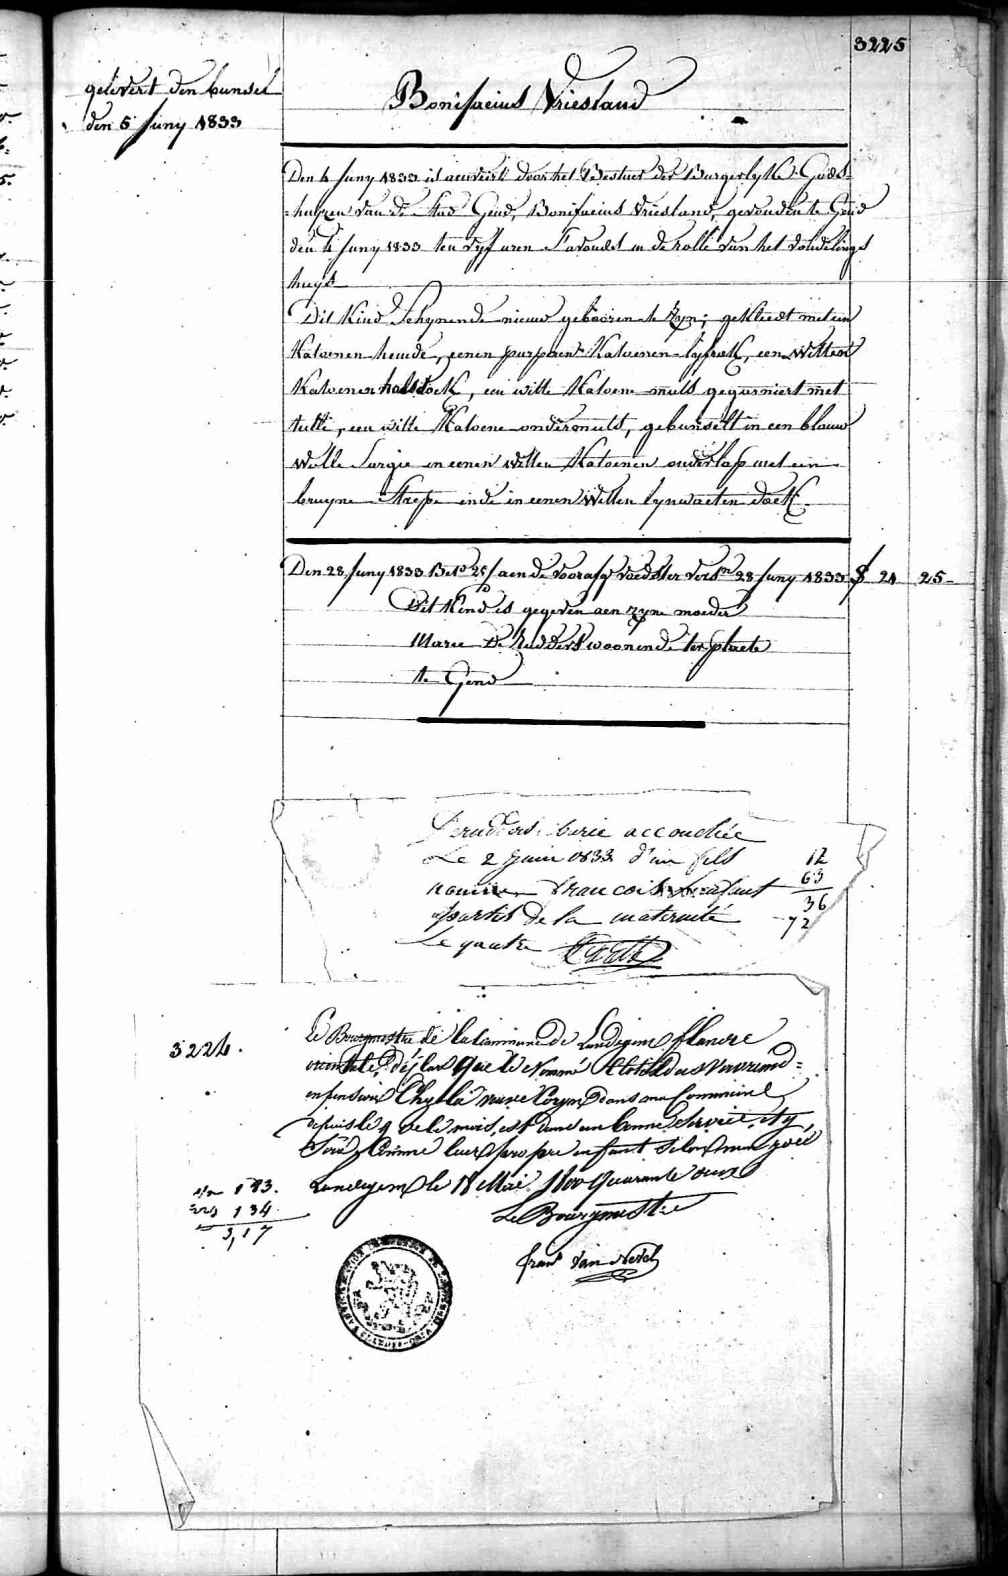 3225
gelivert den bunsel
den 5 Juny 1833
Bonifacius Vriesland
Den 4 Juny 1833 is aenveert door het Bestuer der Burgerlyke Gods-
huyzen van de Stad Gend, Bonifacius Vriesland, gevonden te Gend
den 4 Juny 1833 ten vyf uren s'avonds in de rolle van het vondelings
huys
Dit Kind Schynende nieuw gebooren te zyn; gekleedt met een
Katoenen hemde, eenen purperen Katoenen lyfrok, een witten
Katoenen halsdoek, een witte Katoene muts gegarniert met
tulle, een witte Katoene ondermuts, gebunselt in een blauw
Wolle Sargie en eenen witten Katoenen overslag met een
bruyne Streepe ende in eenen Witten lynwaeten doek
Den 28 Juny 1833 aen de voedster 28 Juny 1833 24 25-
Dit Kind is gegeven aen zyne moeder
Marie De Ridders woonende ter plaete
te Gend
accouchée
Le 2 Juin 1833 d'un fils 12
nommé Francois 63
36
sortis de la maternité 72
Le quatre
3224.
Le Bourgmestre de la Commune de Landegem flandre
orientale, déclare que le Nommé
enfans chez la dans ma Commune
depuis le 9 de le mois, est dans un bonne Service, et y
Soin Comme leur propre enfant
Landegem le 18 Mai 1800 quarante deux
183.
134
3,17
Le Bourgmestre
fran Van Nevel